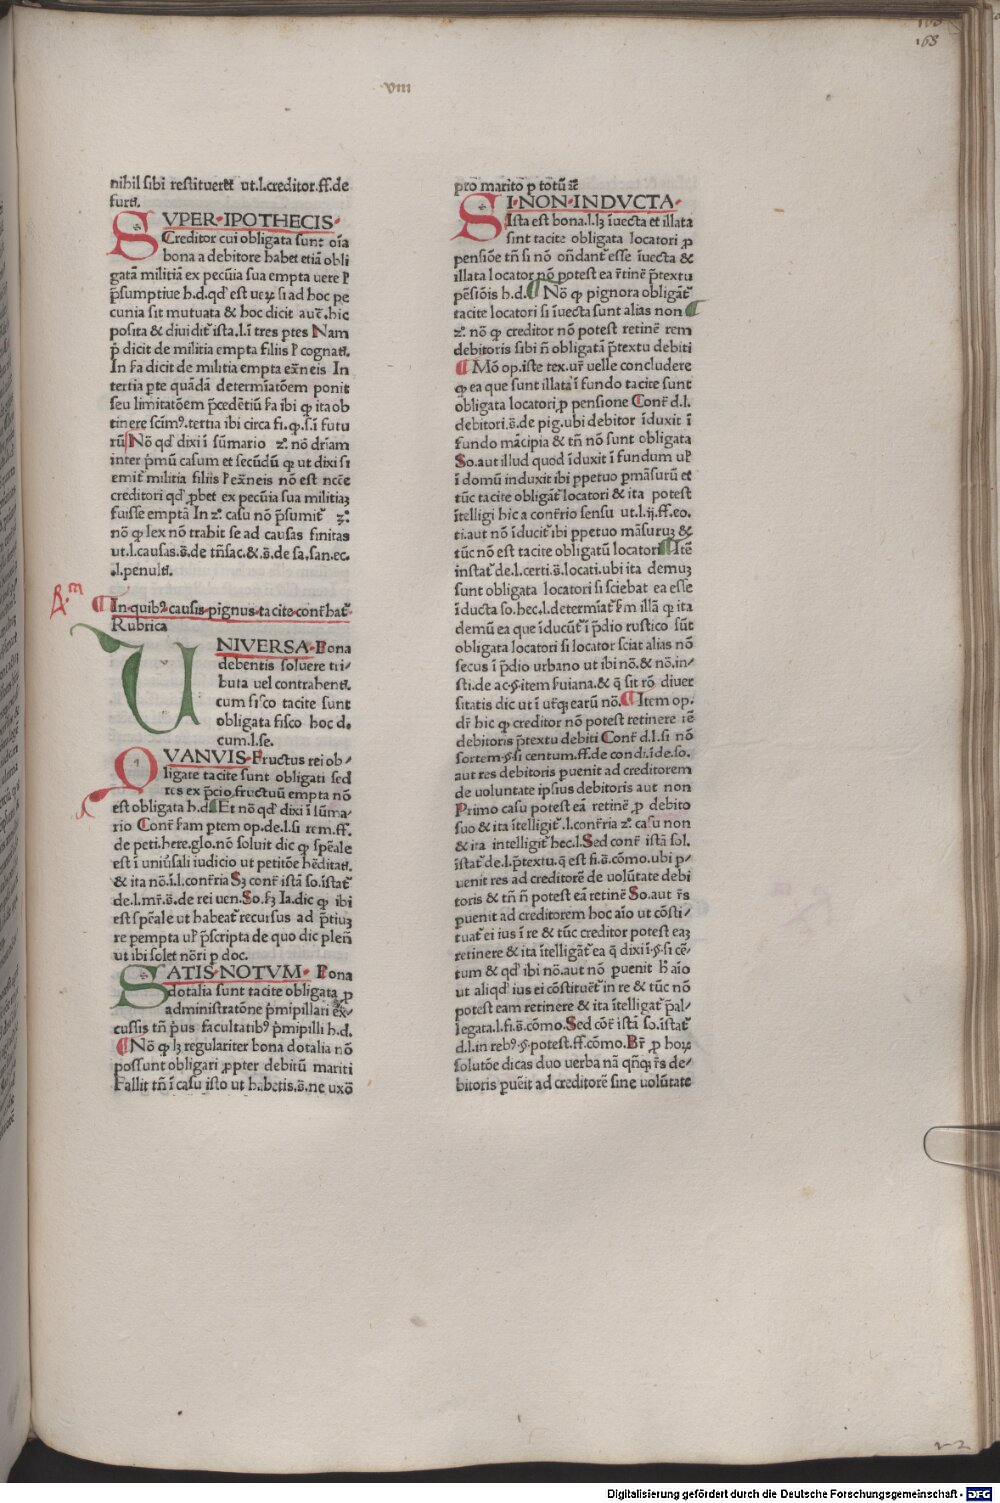 168
viii
nihil sibi restitueret̄ ut.l.creditor.ff.de
furti.
SVPER·IPOTHECIS·
Creditor cui obligata sunt oīa
bona a debitore habet etiā obli
gatā militiā ex pecūia sua empta uere ł
p̄sumptiue h.d.qd̕ est ueꝝ si ad hoc pe
cunia sit mutuata & hoc dicit auc̄t.hic
posita & diuidit̄ ista.l.ī tres ptes Nam
p̄ dicit de militia empta filiis ł cognati.
In ſa dicit de militia empta exn̄eis In
tertia pte quādā determīatōem ponit
seu limitatōem p̄cedētiū ſa ibi ꝙ ita ob
tinere scim⁹.tertia ibi circa fi.ꝙ.s.ī futu
rū Nō qd̕ dixi ī sūmario z°. nō dr̄iam
inter p̄mū casum et secūdū ꝙ ut dixi si
emit̄ militia filiis ł exn̄eis nō est nēce
creditori qd̕ ꝓbet ex pecūia sua militiaꝫ
fuisse emptā In z°. casu nō p̄sumit̄ z°:
nō ꝙ lex nō trahit se ad causas finitas
ut.l.causas.s̄.de trāsac.& s̄.de sa.san.ec.
.l.penulti.
¶In·quib⁹·causis·pignus·tacite·contr̄hat̄·
Rubrica
VNIVERSA·Bona
debentis soluere tri/
buta uel contrahenti.
cum fisco tacite sunt
obligata fisco hoc d.
cum.l.se.
QVANVIS·Fructus rei ob/
ligate tacite sunt obligati sed
res ex p̄cio fructuū empta nō
est obligata h.d.¶Et nō qd̕ dixi ī sūma·
rio Contr̄ ſam ptem op.de.l.si rem.ff.
de peti.here.glo.nō soluit dic ꝙ spēale
est ī uniu̕sali iudicio ut petitōe hēditati.
& ita nō.ī.l.contr̄ria Sꝫ contr̄ istā so.īstat̄
de.l.mr̄.s̄.de rei uen.So.ſꝫ Ia.dic ꝙ ibi
est spēale ut habeat̄ recursus ad p̄tiuꝫ
re pempta uł p̄scripta de quo dic pleñ
ut ibi solet nōri p doc.
SATIS·NOTVM· Bona
dotalia sunt tacite obligata ꝓ
administratōne p̄mipillari ex/
cussis tn̄ p̄us facultatib⁹ p̄mipilli h.d.
¶Nō ꝙ lꝫ regulariter bona dotalia nō
possunt obligari ꝓpter debitū mariti
Fallit tn̄ ī casu isto ut habetis.s̄.ne uxō
pro marito p totū zc̄
SI·NON·INDVCTA·
Ista est bona.l.lꝫ īuecta et illata
sint tacite obligata locatori ꝓ
pensiōe tn̄ si nō on̄dant̄ esse īuecta &
illata locator nō potest ea r̄tinē p̄textu
pēsiōis h.d.¶ Nō ꝙ pignora obligāt̄
tacite locatori si īuecta sunt alias non¶
z°. nō ꝙ creditor nō potest retinē rem
debitoris sibi ñ obligatā p̄textu debiti
¶ Mō op.iste tex.ur̄ uelle concludere
ꝙ ea que sunt illata ī fundo tacite sunt
obligata locatori ꝓ pensione Contr̄ d.l.
debitori.s̄.de pig.ubi debitor īduxit ī
fundo mācipia & tn̄ nō sunt obligata
So.aut illud quod īduxit ī fundum uł
ī domū induxit ibi ppetuo pmāsurū et
tūc tacite obligāt̄ locatori & ita potest
ītelligi hic a contr̄io sensu ut.l.ij.ff.eo.
ti.aut nō īducit̄ ibi ppetuo māsuruꝫ &
tūc nō est tacite obligatū locatori¶Itē
instat̄ de.l.certi.s̄.locati.ubi ita demuꝫ
sunt obligata locatori si sciebat ea esse
īducta so.hec.l.determīat̄ ſm illā ꝙ ita
demū ea que īducūt̄ ī p̄dio rustico sūt
obligata locatori si locator sciat alias nō
secus ī p̄dio urbano ut ibi nō.& nō.in·
sti.de ac.§.item ſuiana.& q̄ sit rō diuer
sitatis dic ut ī utr̄q; earū nō.¶Item op.
dr̄ hic ꝙ creditor nō potest retinere rē
debitoris p̄textu debiti Contr̄ d.l.si nō
sortem.§.si centum.ff.de condi.īde.so.
aut res debitoris puenit ad creditorem
de uoluntate ipsius debitoris aut non
Primo casu potest eā retinē ꝓ debito
suo & ita ītelligit̄.l.contr̄ria z°. casu non
& ita intelligit̄ hec.l.Sed contr̄ istā sol.
īstat̄ de.l.p̄textu.q̄ est fi.s̄.cōmo.ubi p·
uenit res ad creditorē de uolūtate debi
toris & tn̄ ñ potest eā retinē So.aut r̄s
puenit ad creditorem hoc aīo ut cōsti·
tuat̄ ei ius ī re & tūc creditor potest eaꝫ
retinere & ita ītelligāt̄ ea q̄ dixi ī.§.si cē·
tum & qd̕ ibi nō.aut nō puenit h̄ aīo
ut aliqd̕ ius ei cōstituēt̄ in re & tūc nō
potest eam retinere & ita ītelligat̄ p̄al/
legata.l.fi.s̄.cōmo.Sed cōtr̄ istā so.īstat̄
d.l.in reb⁹.§.potest.ff.cōmo.Br̄ ꝓ hoꝝ
solutōe dicas duo uerba nā qñq; r̄s de/
bitoris puēit ad creditorē sine uolūtate
Digitalisierung gefördert durch die Deutsche Forschungsgemeinschaft - DFG